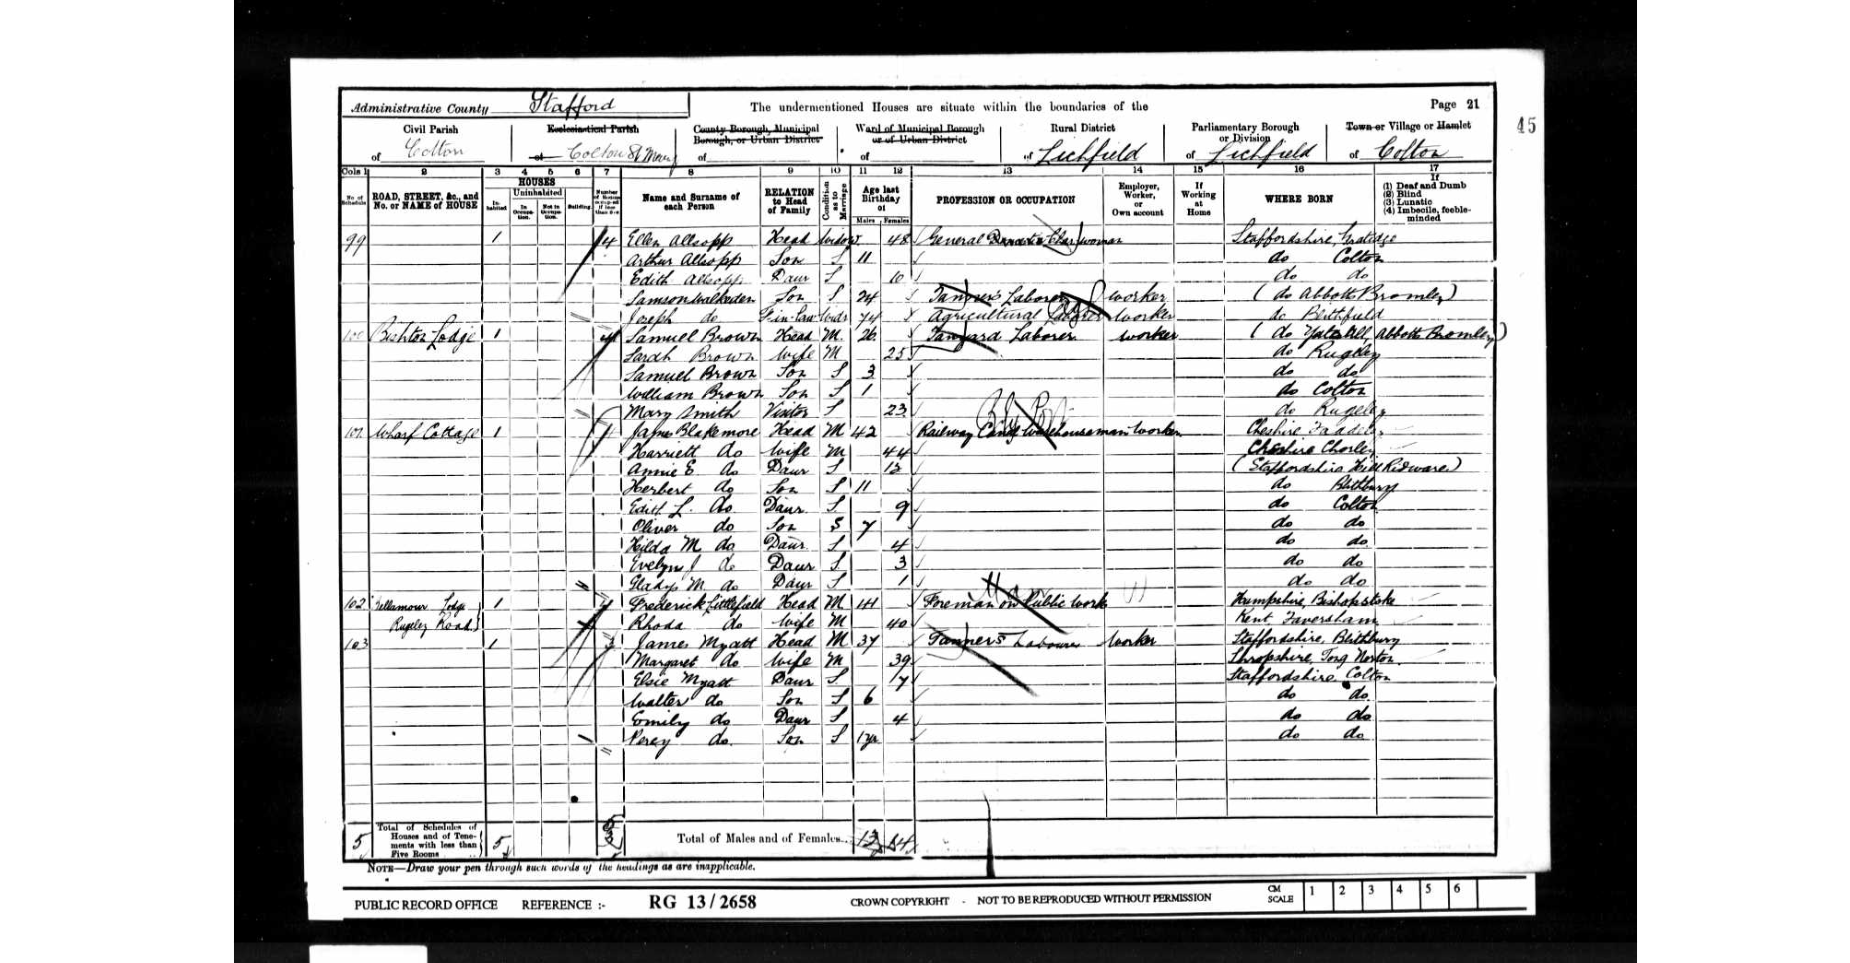 Administrative County Stafford
The undermentioned Houses are situate within the boundaries of the
Page 21
45
Civil Parish of Colton
Ecclesiastical Parish of Colton St Mary
County Borough, Municipal Borough, or Urban District of
Ward of Municipal Borough or of Urban District of
Rural District of Lichfield
Parliamentary Borough or Division of Lichfield
Town or Village or Hamlet of Colton
Cols 1 2 3 4 5 6 7 8 9 10 11 12 13 14 15 16 17
No. of Schedule
ROAD, STREET, &c., and No. or NAME of HOUSE
HOUSES
Inhabited
Uninhabited
In Occupation.
Not in Occupation.
Building.
Name and Surname of each Person
RELATION to Head of Family
Condition as to Marriage
Age last Birthday of
Males Females
PROFESSION OR OCCUPATION
Employer, Worker, or Own account
If Working at Home
WHERE BORN
If (1) Deaf and Dumb (2) Blind (3) Lunatic (4) Imbecile, feeble-minded
99 1 4 Ellen Allsopp Head Widow 48 General Charwoman Staffordshire,
Arthur Allsopp Son S 11 do Colton
Edith Allsopp Daur S 10 do do
Samson Walkeden Son S 24 Tanner's Laborer worker (do Abbotts Bromley)
Joseph do F-in-law Widr 74 Agricultural Laborer worker do Blithfield
100 Bishton Lodge 1 4 Samuel Brown Head M. 26 Tanyard Laborer worker (do Abbotts Bromley)
Sarah Brown Wife M 25 do Rugeley
Samuel Brown Son S 3 do do
William Brown Son S 1 do Colton
Mary Smith Visitor S 23 do Rugeley
101 Wharf Cottage 1 4 James Blakemore Head M 42 Railway Canal Warehouseman Worker Cheshire
Harriett do Wife M 44 Cheshire Chorley
Annie E. do Daur S 13 (Staffordshire Hill Ridware)
Herbert do Son S 11 do Blithbury
Edith L. do Daur. S 9 do Colton
Oliver do Son S 7 do do
Hilda M. do Daur. S 4 do do
Evelyn J do Daur S 3 do do
Gladys M. do Daur S 1 do do
102 Bellamour Lodge 1 4 Frederick Littlefield Head M 41 Foreman on Public Work Hampshire, Bishopstoke
Rugeley Road Rhoda do Wife M 40 Kent Faversham
103 1 3 James Myatt Head M 37 Tanners Labourer Worker Staffordshire, Blithbury
Margaret do Wife M 39 Shropshire, Norton
Elsie Myatt Daur S 17 Staffordshire, Colton
Walter do Son S 6 do do
Emily do Daur S 4 do do
Percy do. Son S do do
5 Total of Schedules of Houses and of Tenements with less than Five Rooms 5
Total of Males and of Females... 13 14
NOTE—Draw your pen through such words of the headings as are inapplicable.
PUBLIC RECORD OFFICE REFERENCE :- RG 13/2658 CROWN COPYRIGHT - NOT TO BE REPRODUCED WITHOUT PERMISSION
CM SCALE 1 2 3 4 5 6